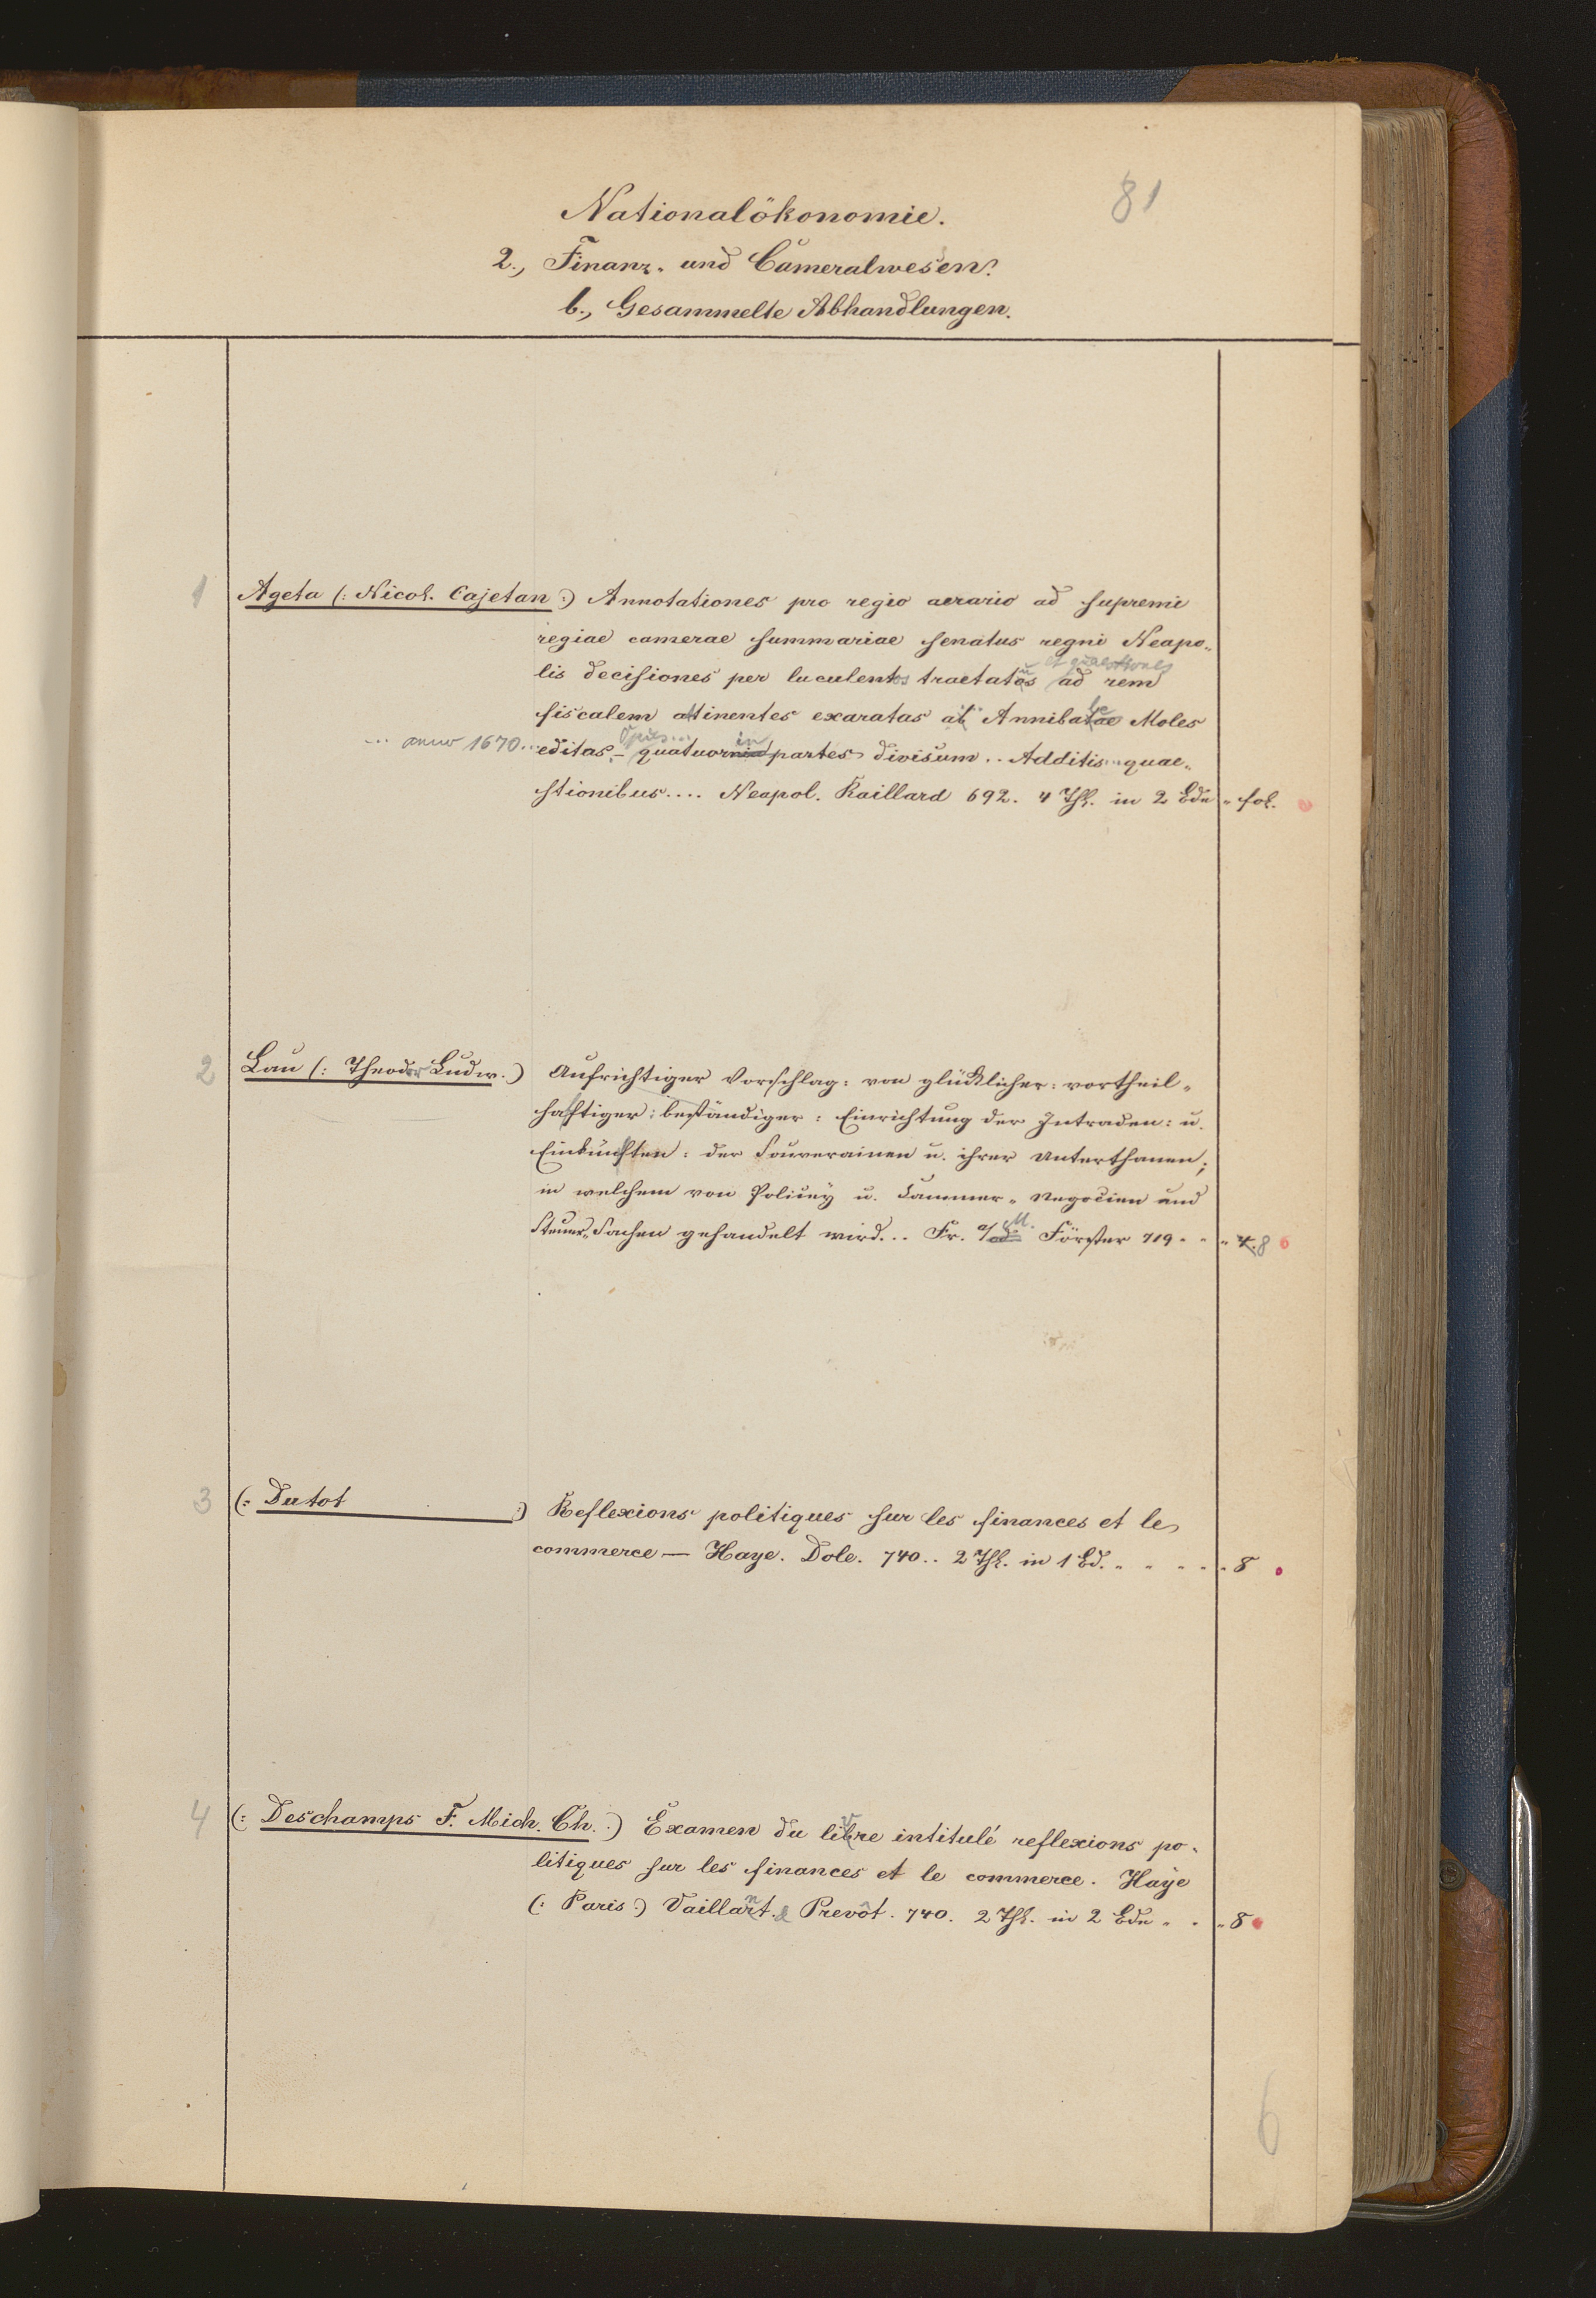 81
Nationalökonomie.
2., Finanz- und Cameralwesen.
b., Gesammelte Abhandlungen.
1 Ageta (: Nicol. Cajetan :) Annotationes pro regio aerario ad supremi
regiae camerae summariae senatus regni Neapo„
et quaestiones
lis decisiones per luculentos tractatus ad rem
fiscalem attinentes exaratas ab Annibale Moles
Opus... in
... anno 1670.. editas, – quatuor partes divisum .. Additis .. quae„
stionibus .... Neapol. Raillard 692. 4 Thl. in 2 Bdn „ fol.
2 Lau (: Theodor Ludw. :) Aufrichtiger Vorschlag: von glücklicher: vortheil„
haftiger: beständiger: Einrichtung der Intraden: u.
Einkünften: der Souverainen u. ihrer Unterthanen;
in welchem von Policey u. Cammer„ Negocien und
Steuer„ Sachen gehandelt wird... Fr. a/M. Förster 719 „ „ „ 4. 8
3 (: Dutot :) Reflexions politiques sur les finances et le
commerce — Haye. Dole. 740.. 2 Thl. in 1 Bd. „ „ „ „ „ 8
4 (: Deschamps F. Mich. Ch. :) Examen du livre intitulé reflexions po„
litiques sur les finances et le commerce. Haÿe
(: Paris :) Vaillant. & Prevôt. 740. 2 Thl. in 2 Bdn „ „ „ 8
6